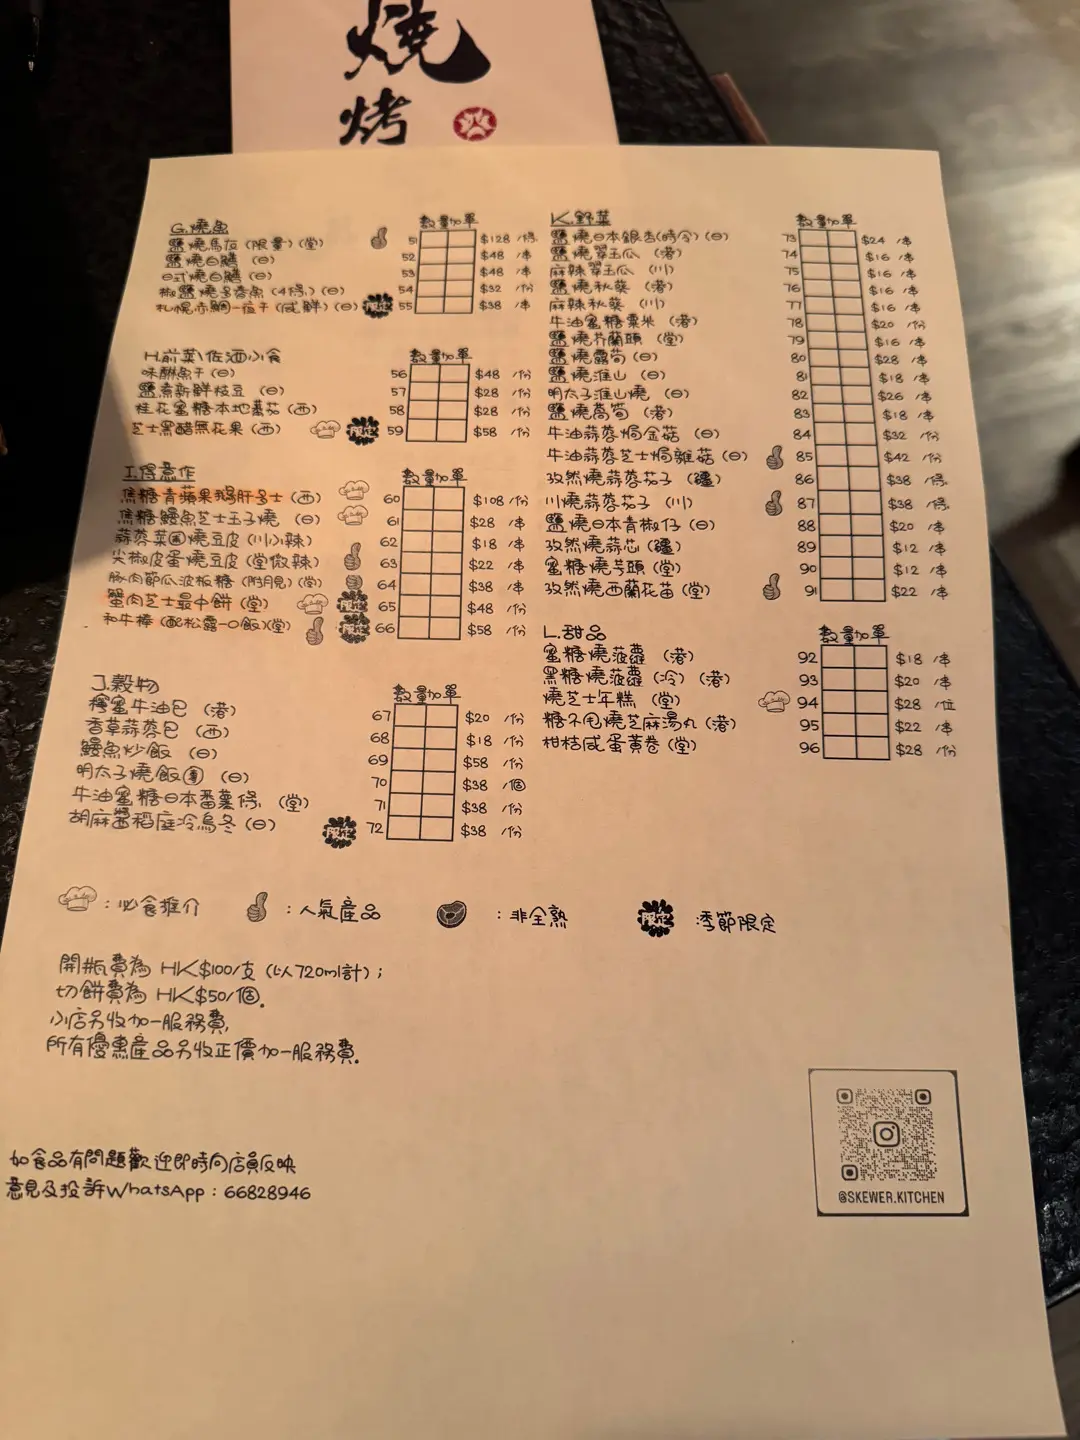 燒
烤
G.燒魚
數量加單
鹽燒馬友(限量)(堂) 51 $128 /條
鹽燒白鱔 (日) 52 $48 /串
日式燒白鱔 (日) 53 $48 /串
椒鹽燒多春魚(4條)(日) 54 $32 /份
札幌赤鯛一夜干(咸鮮)(日) 限定 55 $38 /串
H.前菜\佐酒小食
數量加單
味醂魚干(日) 56 $48 /份
鹽煮新鮮枝豆 (日) 57 $28 /份
桂花蜜糖本地蕃茄(西) 58 $28 /份
芝士黑醋無花果(西) 限定 59 $58 /份
I.得意作
數量加單
焦糖青蘋果鵝肝多士(西) 60 $108/份
焦糖鰻魚芝士玉子燒 (日) 61 $28 /串
蒜蓉菜圃燒豆皮(川小辣) 62 $18 /串
尖椒皮蛋燒豆皮(堂微辣) 63 $22 /串
豚肉節瓜波板糖(附月見)(堂) 64 $38 /串
蟹肉芝士最中餅(堂) 限定 65 $48 /份
和牛棒(配松露一口飯)(堂) 限定 66 $58 /份
J.穀物
數量加單
檸蜜牛油包 (港) 67 $20 /份
香草蒜蓉包 (西) 68 $18 /份
鰻魚炒飯 (日) 69 $58 /份
明太子燒飯團 (日) 70 $38 /個
牛油蜜糖日本番薯條 (堂) 71 $38 /份
胡麻醬稻庭冷烏冬(日) 限定 72 $38 /份
K.野菜
數量加單
鹽燒日本銀杏(時令)(日) 73 $24 /串
鹽燒翠玉瓜 (港) 74 $16 /串
麻辣翠玉瓜 (川) 75 $16 /串
鹽燒秋葵 (港) 76 $16 /串
麻辣秋葵 (川) 77 $16 /串
牛油蜜糖粟米 (港) 78 $20 /份
鹽燒芥蘭頭 (堂) 79 $16 /串
鹽燒露筍(日) 80 $28 /串
鹽燒淮山 (日) 81 $18 /串
明太子淮山燒 (日) 82 $26 /串
鹽燒萵筍(港) 83 $18 /串
牛油蒜蓉焗金菇 (日) 84 $32 /份
牛油蒜蓉芝士焗雜菇(日) 85 $42 /份
孜然燒蒜蓉茄子 (疆) 86 $38 /條
川燒蒜蓉茄子(川) 87 $38 /條
鹽燒日本青椒仔(日) 88 $20 /串
孜然燒蒜芯(疆) 89 $12 /串
蜜糖燒芋頭(堂) 90 $12 /串
孜然燒西蘭花苗(堂) 91 $22 /串
L.甜品
數量加單
蜜糖燒菠蘿 (港) 92 $18 /串
黑糖燒菠蘿(冷)(港) 93 $20 /串
燒芝士年糕 (堂) 94 $28 /位
糖不甩燒芝麻湯丸(港) 95 $22 /串
柑桔咸蛋黃卷(堂) 96 $28 /份
:必食推介 :人氣產品 :非全熟 限定 季節限定
開瓶費為 HK$100/支(以720ml計);
切餅費為 HK$50/個。
小店另收加一服務費,
所有優惠產品另收正價加一服務費.
如食品有問題歡迎即時向店員反映
意見及投訴WhatsApp:66828946
@SKEWER.KITCHEN